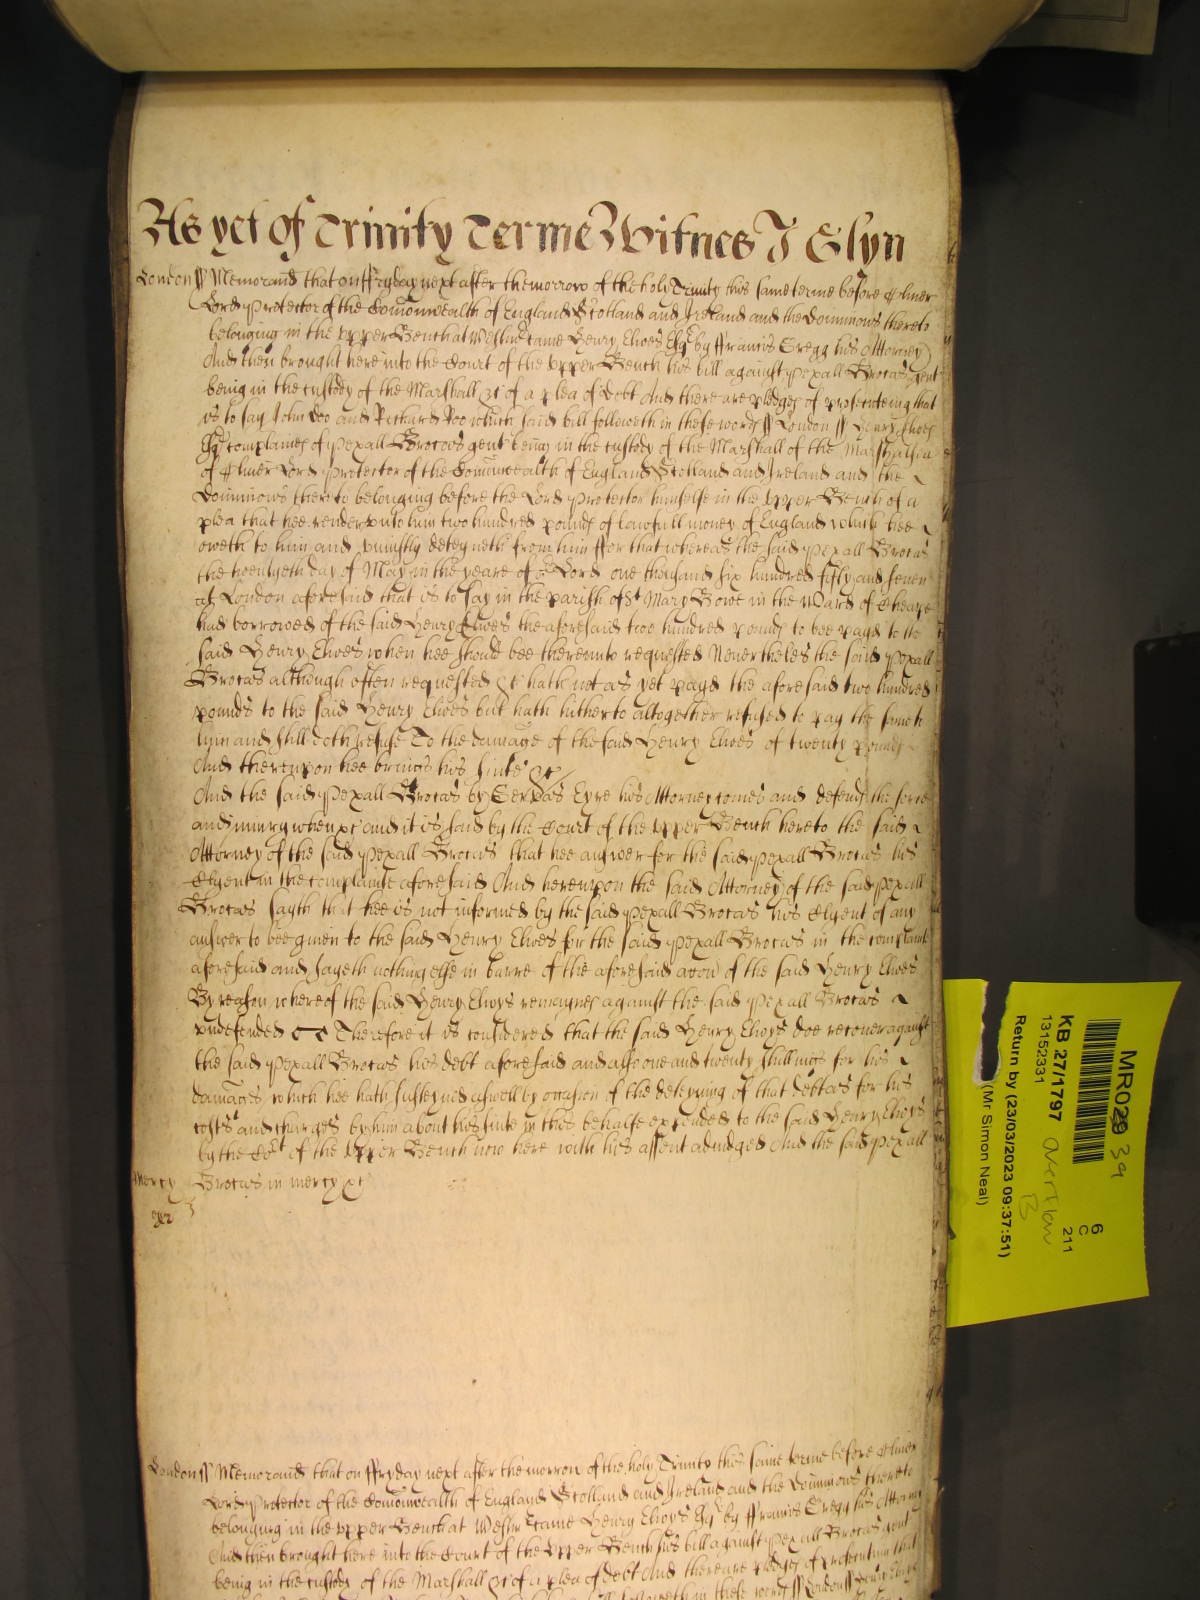 As yet of Trinity Terme Witnes J Glyn
London ss Memorand that on ffryday next after the morrow of the holy Trinity this same terme before Oliver
Lord Protector of the Comonwealth of England Scotland and Ireland and the Dominions thereto
belonging in the upper Bench at Westmr came Henry Elwes Esqr by ffrancis Gregg his Attorney
And then brought here into the Court of the upper Bench his bill against Pexall Brocas gent
being in the custody of the Marshall &c of a plea of debt And there are pledges of prosecuteing that
is to say John Doo and Richard Roo which said bill followeth in these words ss London ss Henry Elwes
Esqr complaines of Pexall Brocas gent being in the custody of the Marshall of the Marshalsia
of Oliver Lord Protector of the Comonwealth of England Scotland and Ireland and the
Dominions thereto belonging before the Lord Protector himselfe in the upper Bench of a
plea that hee render unto him two hundred pounds of lawfull money of England which hee
oweth to him and uniustly deteyneth from him ffor that whereas the said Pexall Brocas
the twentyeth day of May in the yeare of or Lord one thousand six hundred fifty and seven
at London aforesaid that is to say in the parish of St Mary Bowe in the Ward of Cheape
had borrowed of the said Henry Elwes the aforesaid two hundred pounds to bee payd to the
said Henry Elwes when hee should bee thereunto requested Neverthelesse the said Pexall
Brocas although often requested &c hath not as yet payd the aforesaid two hundred
pounds to the said Henry Elwes but hath hitherto altogether refused to pay the same to
him and still doth refuse To the damage of the said Henry Elwes of twenty pounds
And thereupon hee brings his suite &c
And the said Pexall Brocas by Gervas Eyre his Attorney comes and defends the force
and iniury when &c and it is said by the Court of the upper Bench here to the said
Attorney of the said Pexall Brocas that hee answer for the said Pexall Brocas his
Clyent in the complainte aforesaid And hereupon the said Attorney of the said Pexall
Brocas sayth that hee is not informed by the said Pexall Brocas his Clyent of any
answer to bee given to the said Henry Elwes for the said Pexall Brocas in the complaint
aforesaid and sayeth nothing else in barre of the aforesaid accon of the said Henry Elwes
By reason whereof the said Henry Elwys remaynes against the said Pexall Brocas
undefended &c Therefore it is considered that the said Henry Elwys doe recover against
the said Pexall Brocas his debt aforesaid and also one and twenty shillings for his
damages which hee hath susteyned aswell by occasion of the deteyning of that debt as for his
costs and charges by him about his suite in this behalfe expended to the said Henry Elwys
by the Cort of the upper Bench now here with his assent adiudged And the said Pexall
Mercy Brocas in mercy &c
London ss Memorand that on ffryday next after the morrow of the holy Trinity this same terme before Oliver
Lord Protector of the Comonwealth of England Scotland and Ireland and the Dominions thereto
belonging in the upper Bench at Westmr came Henry Elwys Esqr by ffrancis Gregg his Attorney
And then brought here into the Court of the upper Bench his bill against Pexall Brocas gent
being in the custody of the Marshall &c of a plea of debt And there are pledges of prosecuting that
MR029 39
6
C
211
KB 27/1797 overflow
B
13152331
Return by (23/03/2023 09:37:51)
(Mr Simon Neal)